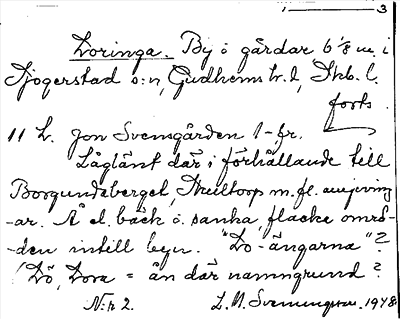 1 — 3
Doringa. By o gårdar 6 1/8 m. i
Sjogerstad s:n, Gudhems h. d, Skb. l.
forts.
11 L. Jon Svensgården 1-fr.
Låglänt där i förhållande till
Borgundaberget, m. fl. omgivning
-ar. Å el. bäck o. sanka, flacka områ-
-den intill byn. "Do-ängarna"?
Dö, Dora = ån där namngrund?
N:r 2. L. M. Svenungsson. 1948